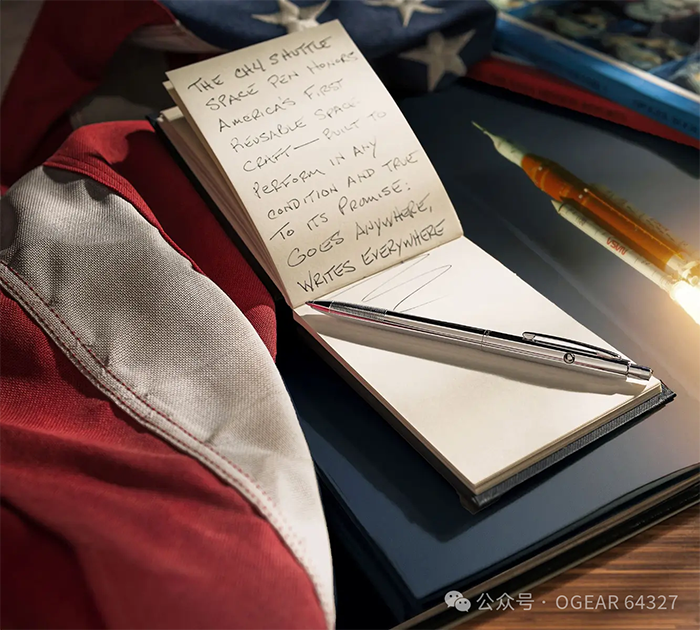 THE CH4 SHUTTLE
SPACE PEN HONORS
AMERICA'S FIRST
REUSABLE SPACE
CRAFT — BUILT TO
PERFORM IN ANY
CONDITION AND TRUE
TO ITS PROMISE:
GOES ANYWHERE,
WRITES EVERYWHERE
公众号 · OGEAR 64327